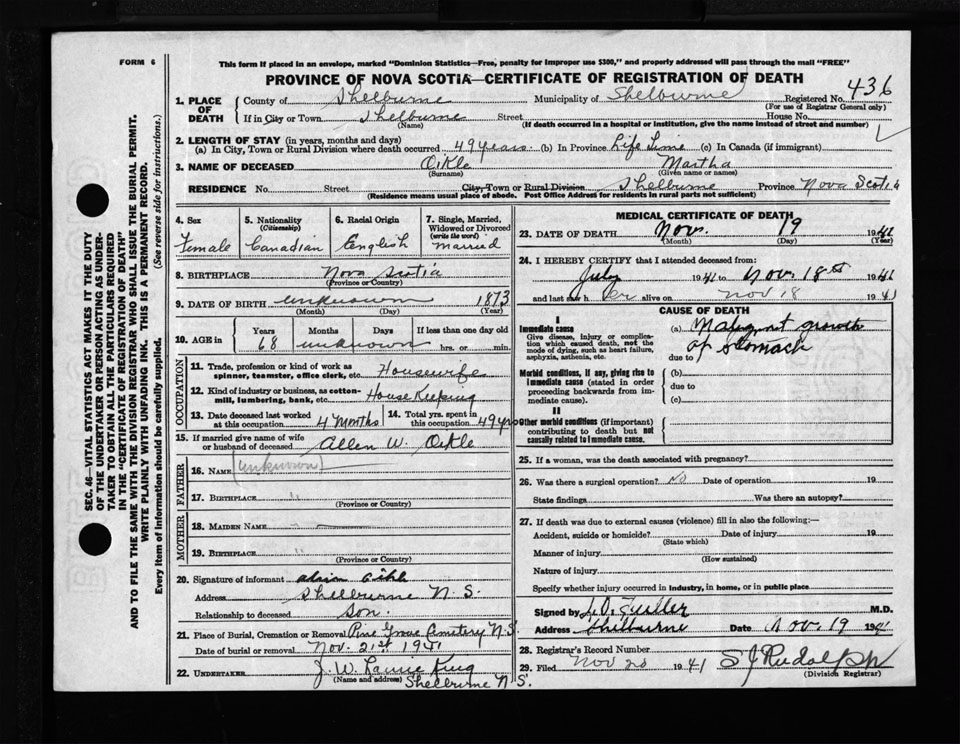 FORM 6
This form if placed in an envelope, marked "Dominion Statistics—Free, penalty for improper use $300," and properly addressed will pass through the mail "FREE"
PROVINCE OF NOVA SCOTIA—CERTIFICATE OF REGISTRATION OF DEATH
436
SEC. 46—VITAL STATISTICS ACT MAKES IT THE DUTY
OF THE UNDERTAKER OR PERSON ACTING AS UNDER-
TAKER TO OBTAIN ALL THE PARTICULARS REQUIRED
IN THE "CERTIFICATE OF REGISTRATION OF DEATH"
AND TO FILE THE SAME WITH THE DIVISION REGISTRAR WHO SHALL ISSUE THE BURIAL PERMIT.
WRITE PLAINLY WITH UNFADING INK. THIS IS A PERMANENT RECORD.
Every item of information should be carefully supplied. (See reverse side for instructions.)
1. PLACE OF DEATH
County of Shelburne Municipality of Shelburne Registered No.
(For use of Registrar General only)
If in City or Town Shelburne Street House No.
(Name) (If death occurred in a hospital or institution, give the name instead of street and number)
2. LENGTH OF STAY (in years, months and days)
(a) In City, Town or Rural Division where death occurred 49 years. (b) In Province Life Time (c) In Canada (if immigrant)
3. NAME OF DECEASED Oikle Martha
(Surname) (Given name or names)
RESIDENCE No. Street City, Town or Rural Division Shelburne Province Nova Scotia
(Residence means usual place of abode. Post Office Address for residents in rural parts not sufficient)
4. Sex
Female
5. Nationality
(Citizenship)
Canadian
6. Racial Origin
English
7. Single, Married,
Widowed or Divorced
(write the word)
Married
8. BIRTHPLACE Nova Scotia
(Province or Country)
9. DATE OF BIRTH unknown 1873
(Month) (Day) (Year)
10. AGE in
Years Months Days If less than one day old
68 unknown hrs. or min.
OCCUPATION
11. Trade, profession or kind of work as
spinner, teamster, office clerk, etc. Housewife
12. Kind of industry or business, as cotton-
mill, lumbering, bank, etc. House Keeping
13. Date deceased last worked
at this occupation 4 Months
14. Total yrs. spent in
this occupation 49 yrs
15. If married give name of wife
or husband of deceased Allen W. Oikle
FATHER
16. NAME (unknown)
17. BIRTHPLACE "
(Province or Country)
MOTHER
18. MAIDEN NAME "
19. BIRTHPLACE "
(Province or Country)
20. Signature of informant Oikle
Address Shelburne N.S.
Relationship to deceased son.
21. Place of Burial, Cremation or Removal Pine Grove Cemetery N.S.
Date of burial or removal Nov. 21st 1941
22. UNDERTAKER J. W.
(Name and address) Shelburne N.S.
MEDICAL CERTIFICATE OF DEATH
23. DATE OF DEATH Nov. 19 1941
(Month) (Day) (Year)
24. I HEREBY CERTIFY that I attended deceased from:
July 1941 to Nov. 18th 1941
and last saw her alive on Nov 18 1941
CAUSE OF DEATH
I
Immediate cause
Give disease, injury or complica-
tion which caused death, not the
mode of dying, such as heart failure,
asphyxia, asthenia, etc.
(a) Malignant growth
of stomach
due to
Morbid conditions, if any, giving rise to
immediate cause (stated in order
proceeding backwards from im-
mediate cause).
(b)
due to
(c)
II
Other morbid conditions (if important)
contributing to death but not
causally related to immediate cause.
25. If a woman, was the death associated with pregnancy?
26. Was there a surgical operation? No Date of operation 19
State findings Was there an autopsy?
27. If death was due to external causes (violence) fill in also the following:—
Accident, suicide or homicide? Date of injury 19
(State which)
Manner of injury
(How sustained)
Nature of injury
Specify whether injury occurred in industry, in home, or in public place
Signed by L. O. Fuller M.D.
Address Shelburne Date Nov. 19 1941
28. Registrar's Record Number
29. Filed Nov 20 1941 S J Rudolph
(Division Registrar)